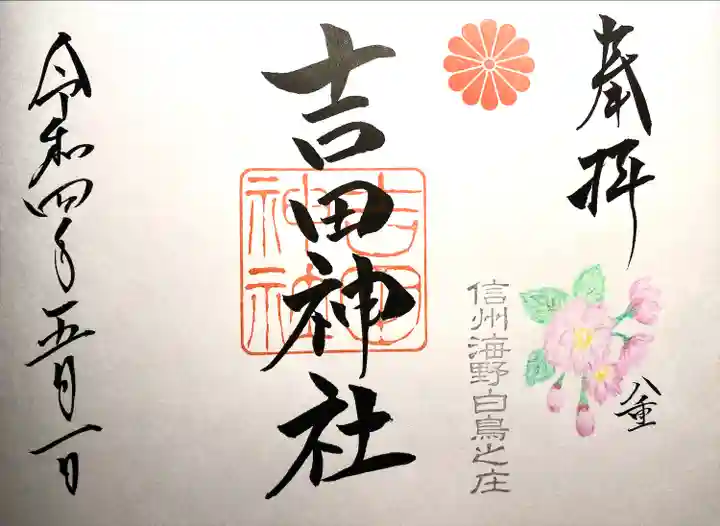 奉拝
八重
信州海野白鳥之庄
吉田神社
吉田神社
令和四年五月一日